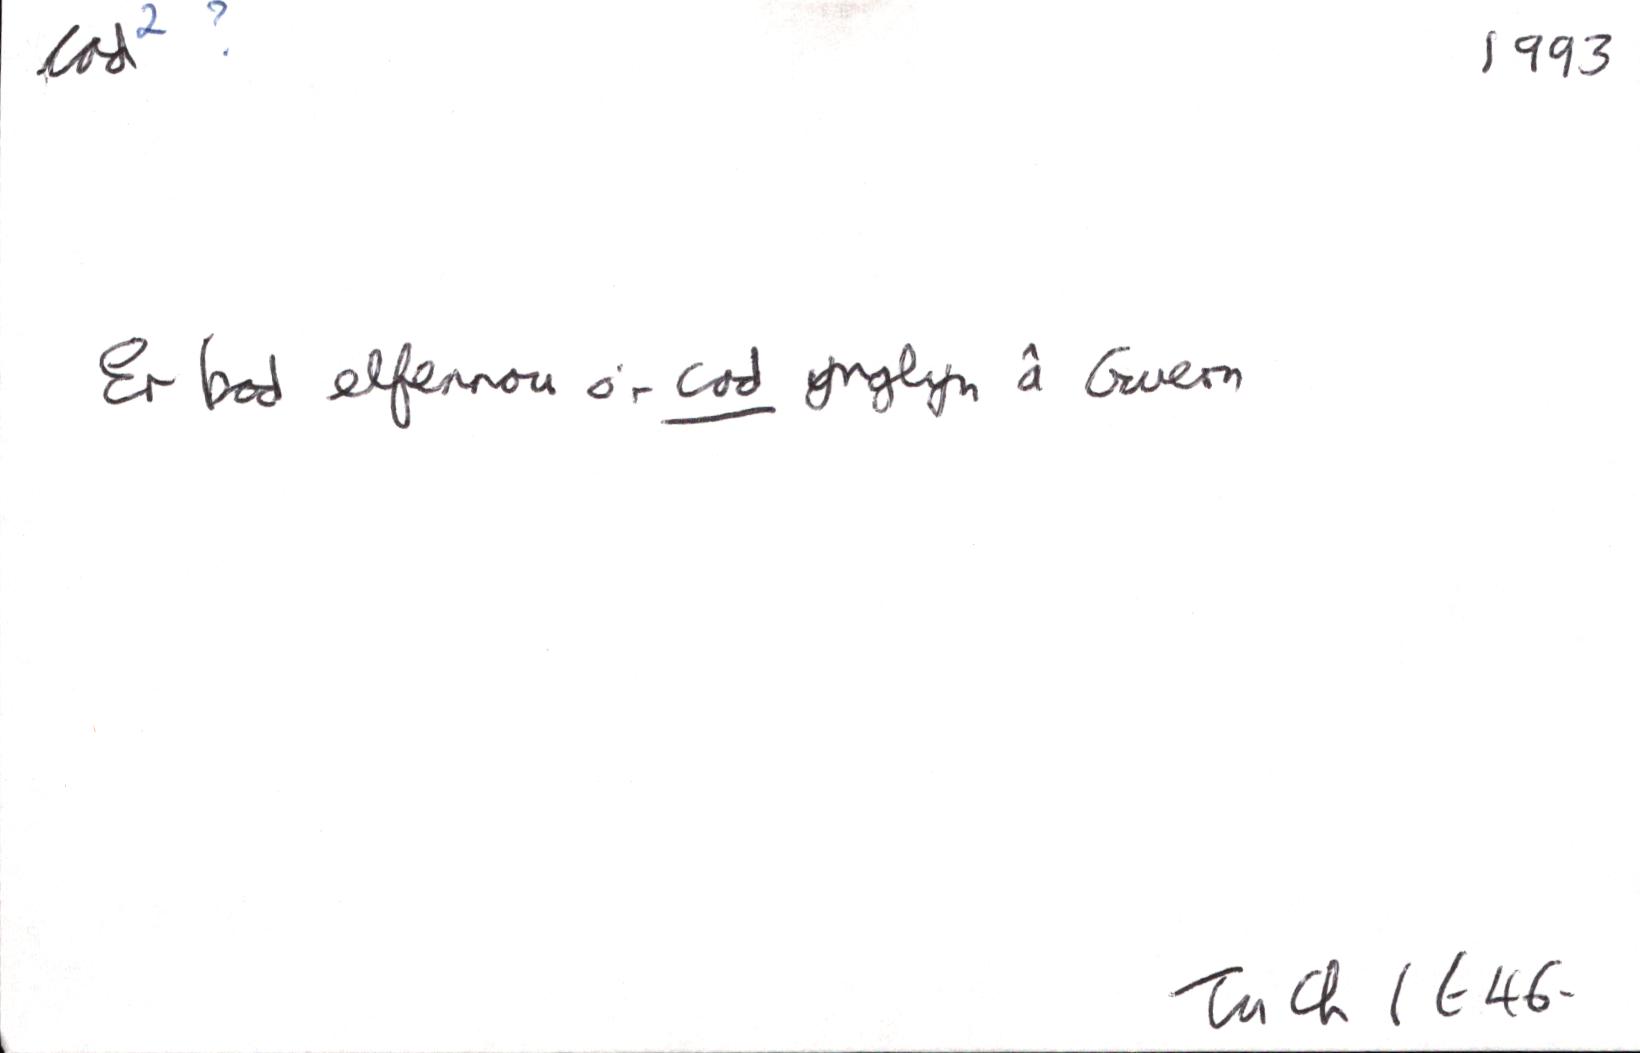 cod² ?
1993
Er bod elfennau o'r cod ynglyn â Gwern
Tu Ch 1 t 46.